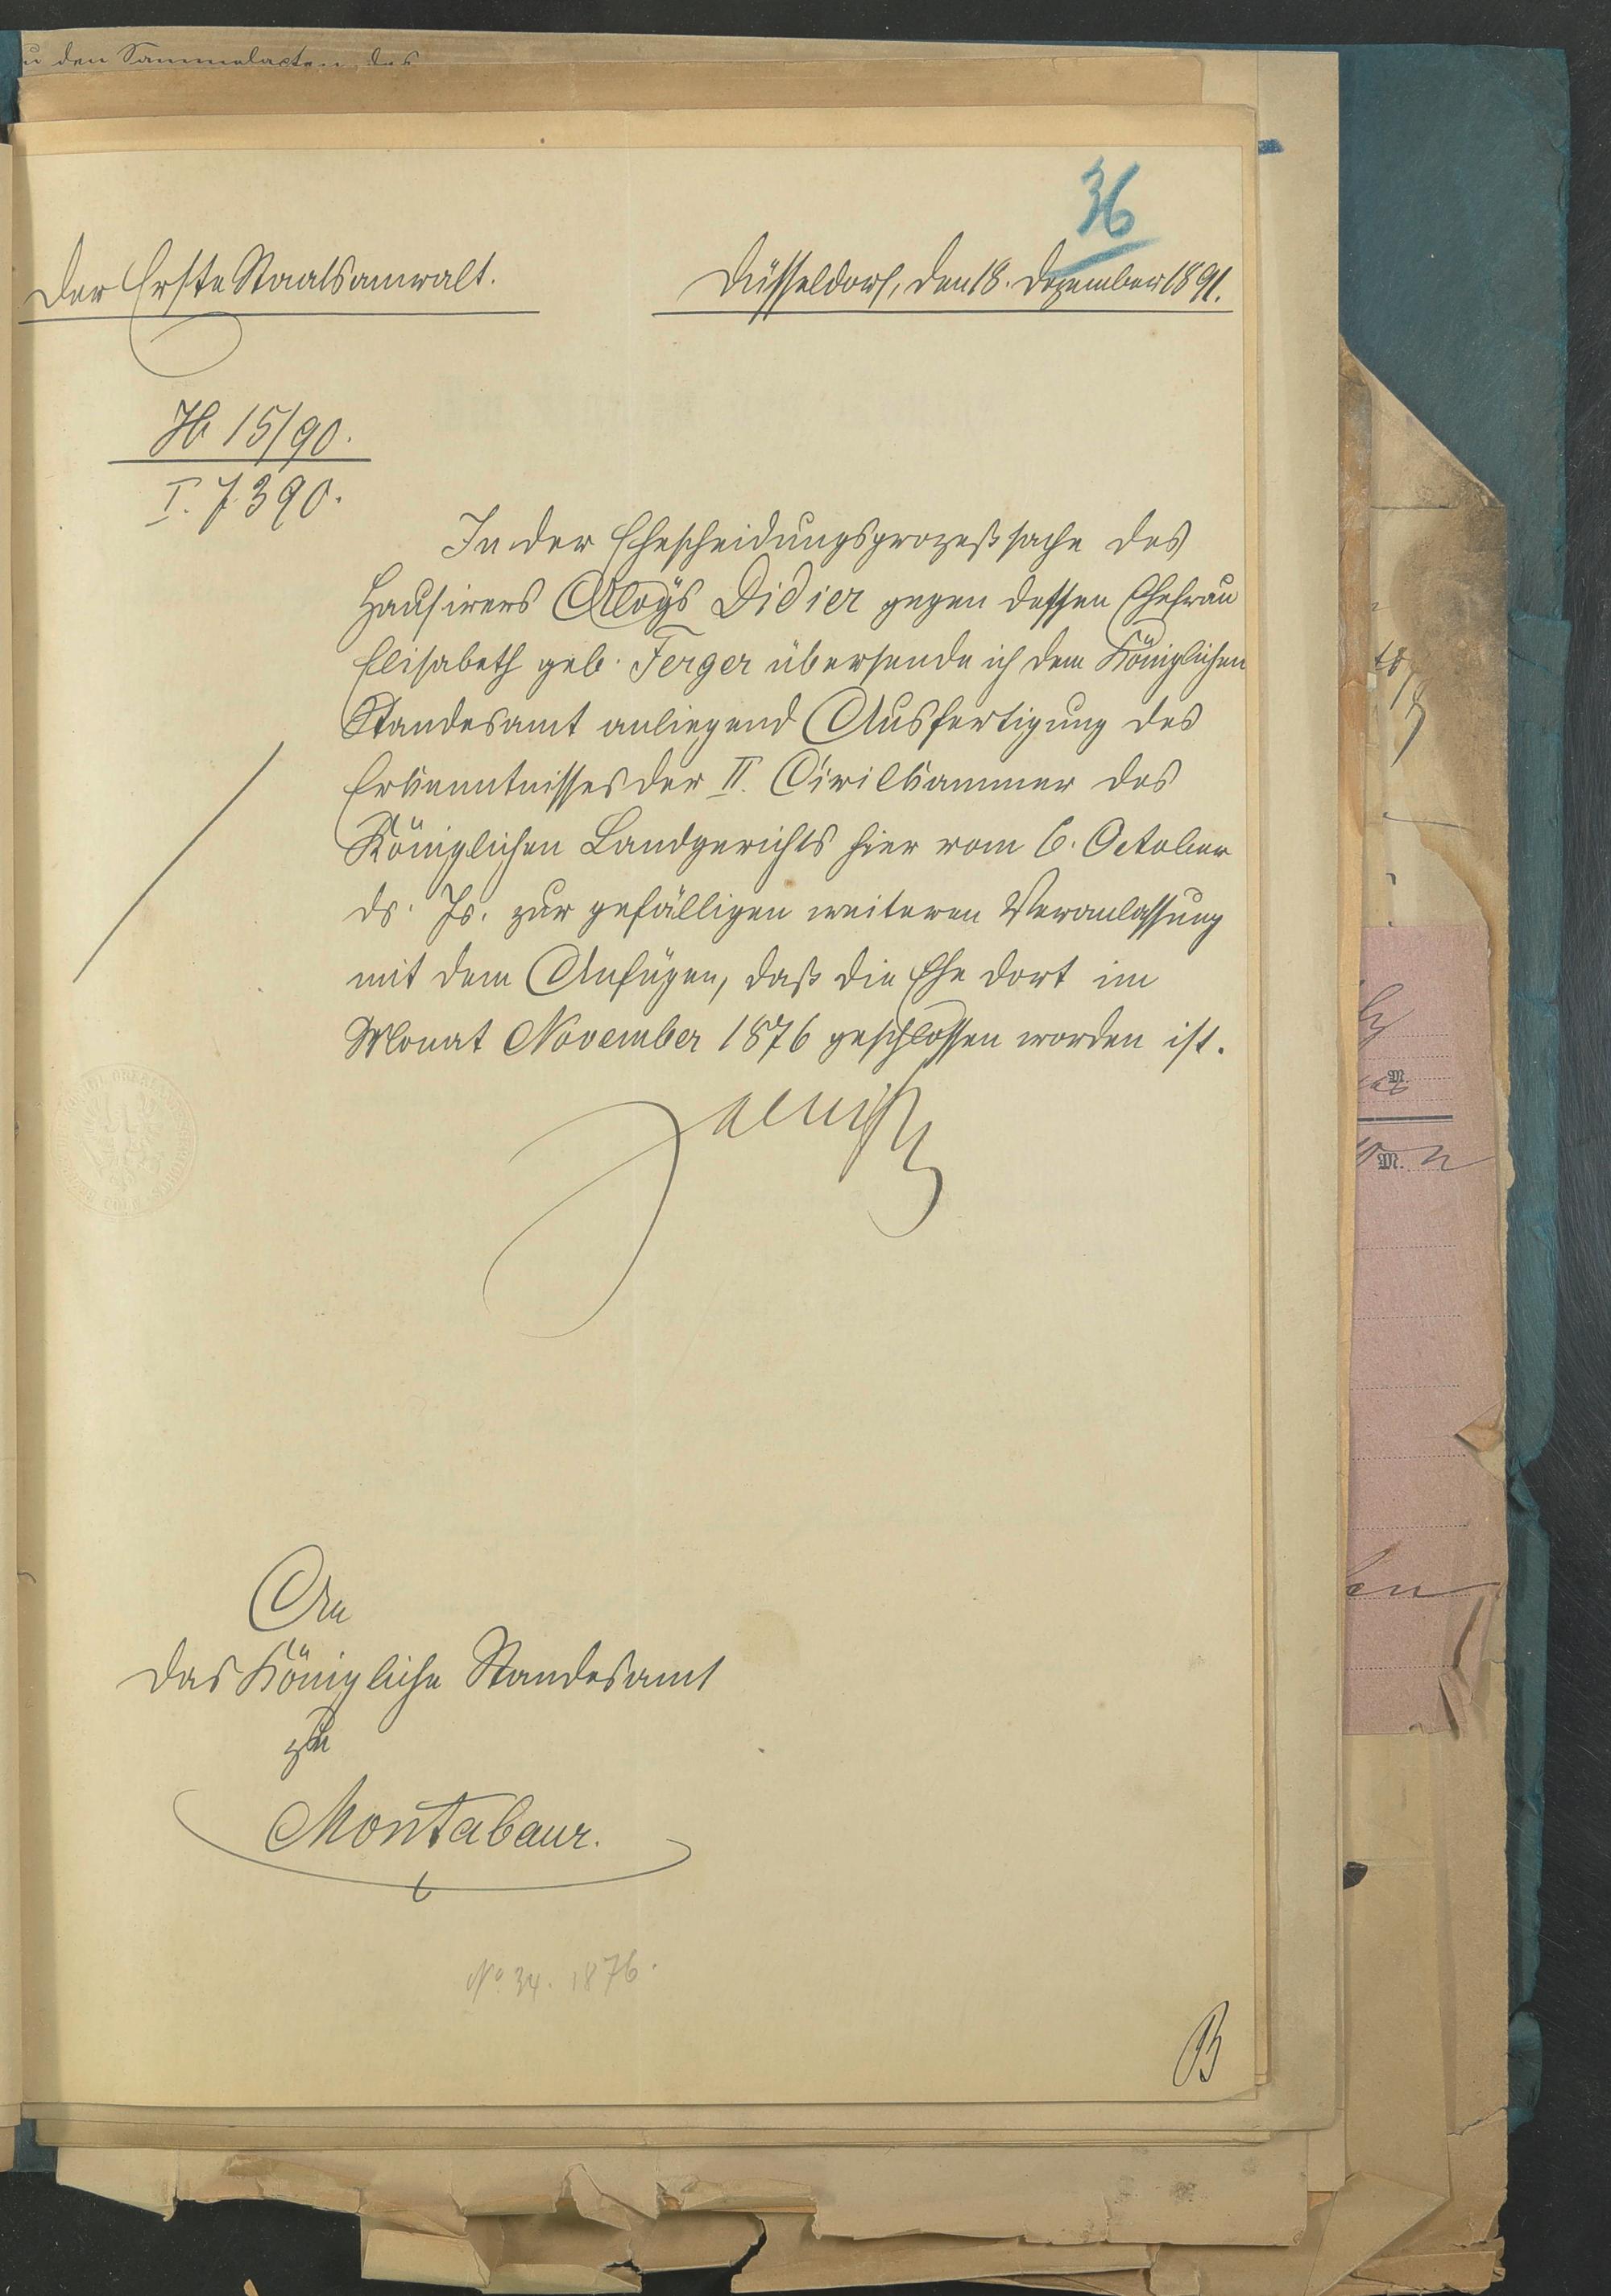 u den Sammelacten des
36
Der Erste Staatsanwalt.
Düsseldorf, den 18. Dezember 1891.
15/90.
I. 7390.
In der Ehescheidungsprozeßsache des
Hausirers Aloÿs Didier gegen dessen Ehefrau
Elisabeth geb. Ferger übersende ich dem Königlichen
Standesamt anliegend Ausfertigung des
Erkenntnisses der II. Civilkammer des
Königlichen Landgerichts hier vom 6. October
ds. Js. zur gefälligen weiteren Veranlassung
mit dem Anfügen, daß die Ehe dort im
Monat November 1876 geschlossen worden ist.
An
das Königliche Standesamt
zu
Montabaur.
No. 34. 1876.
B
M.
M.